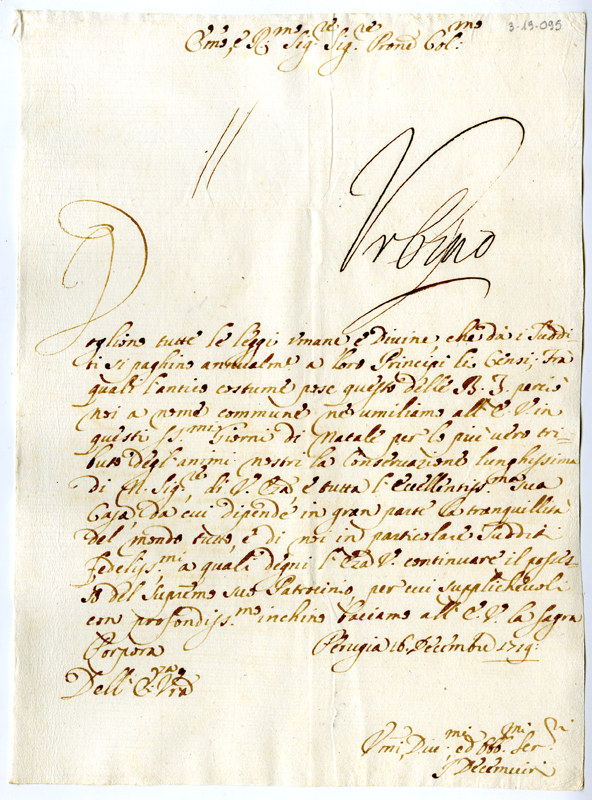 3-19-095
Em̃o, e R.mo Sig.re Sig.re Pron̄e Col.mo
Urbino
Vogliono tutte le leggi umane e Divine, che da i Suddi-
ti si paghino annualm.e a loro Principi li Censi; tra
quali l'antico costume pose questo delle B. F. perciò
noi a nome commune ne umiliamo all'E.V. in
questi SS.mi Giorni di Natale per lo più vero tri-
buto degl'animi nostri la Conservazione lunghissima
di N. Sig.re, di V. Ēza e tutta l'Eccellentiss.ma Sua
Casa, da cui dipende in gran parte la tranquillità
del mondo tutto, e di noi in particolare Sudditi
fedeliss.mi a quali degni l'Ēza V. continuare il posses-
so del Supremo suo Patrocinio, per cui supplichevoli
con profondiss.mo inchino baciamo all'E.V. la Sagra
Porpora
Perugia 16. Decembre 1719:
Dell'E.za Vr̄a
Vmi, Div.mi ed obb.mi Ser.ri
I Decemviri